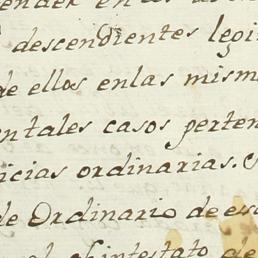 ender en las
descendientes legi
de ellos enlas mism
entales casos perten
icias ordinarias.
de Ordinario de es
abintestato de